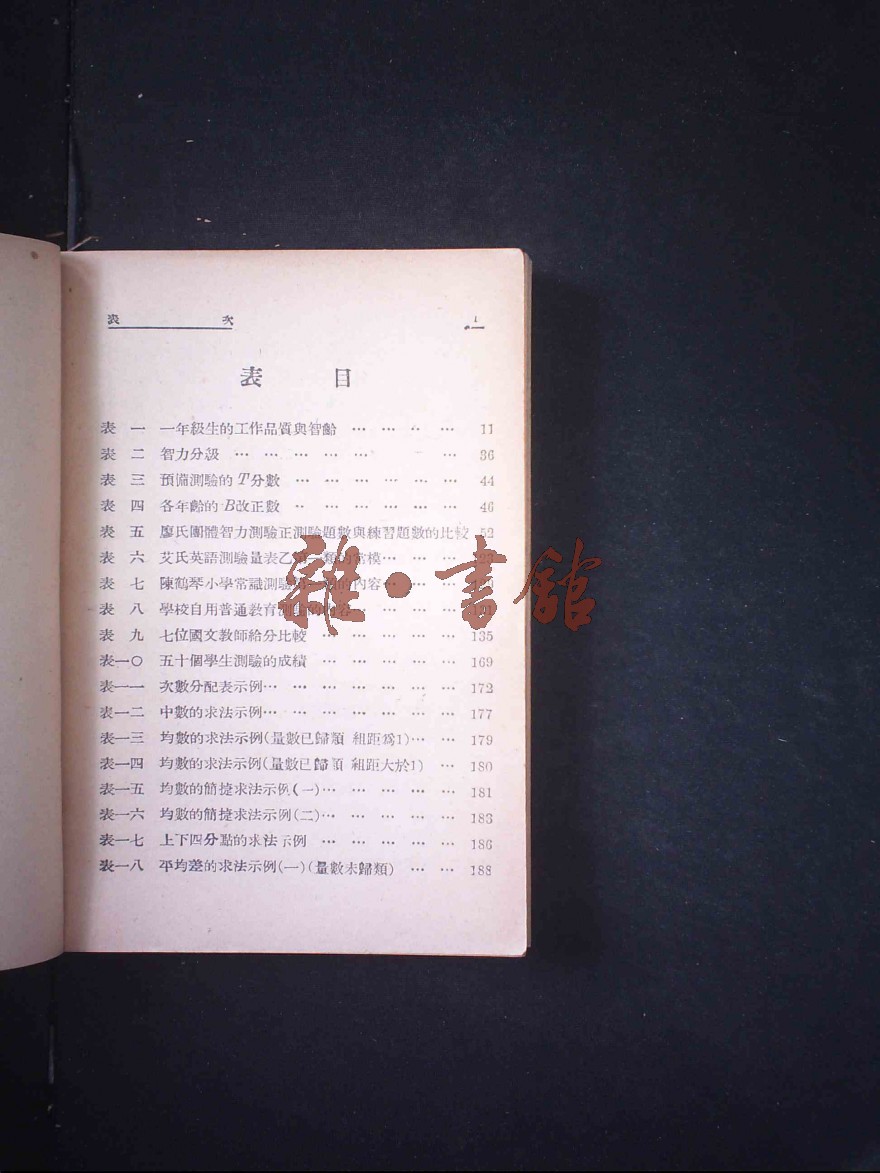 表 次 1
表 目
表 一 一年級生的工作品質與智齡 … … ‥ … 11
表 二 智力分級 … … … … … … … 36
表 三 預備測驗的T分數 … … … … … … 44
表 四 各年齡的B改正數 ‥ … … … … … 46
表 五 廖氏團體智力測驗正測驗題數與練習題數的比較 52
表 六 艾氏英語測驗量表乙 類的常模… … …
表 七 陳鶴琴小學常識測驗 的內容… … …
表 八 學校自用普通教育測驗的內容… … … …
表 九 七位國文教師給分比較 … … … … … 135
表一〇 五十個學生測驗的成績 … … … … … 169
表一一 次數分配表示例… … … … … … … 172
表一二 中數的求法示例… … … … … … … 177
表一三 均數的求法示例(量數已歸類 組距爲1)… … 179
表一四 均數的求法示例(量數已歸類 組距大於1) … 180
表一五 均數的簡捷求法示例(一)… … … … … 181
表一六 均數的簡捷求法示例(二)… … … … … 183
表一七 上下四分點的求法示例 … … … … … 186
表一八 平均差的求法示例(一)(量數未歸類) … … 188
雜·書館